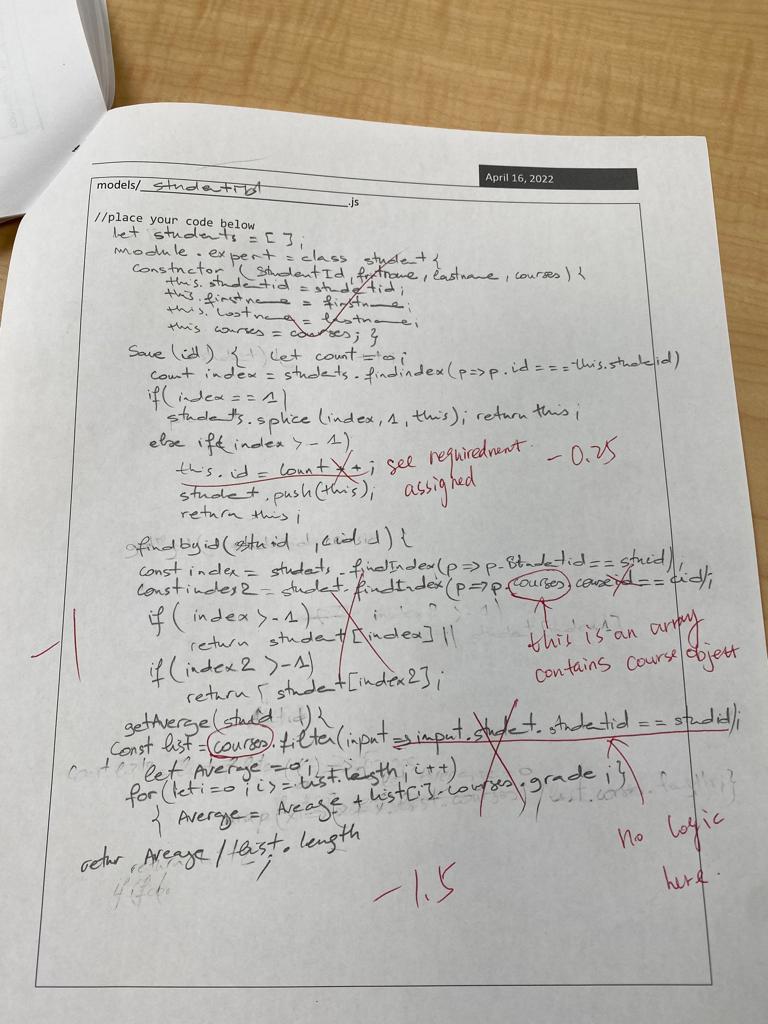 April 16, 2022
models/ studentist .js
//place your code below
let students = [ ];
module . expert = class student {
constrctor ( StudentId, firstname, lastname, courses) {
this. studentid = studentid;
this. firstname = firstname;
this. lastname = lastname;
this courses = courses; }
Save (id) { let count = 0;
count index = students . findindex (p=> p. id === this. studeid)
if ( index == 1)
students. splice (index, 1, this); return this;
else if( index > -1)
this. id = count ++; see requirednent - 0.25
student. push (this); assigned
return this;
findbyid (stuid , cid) {
const index = students . findIndex (p => p. Studetid == stuid);
const index2 = student. findIndex (p => p. courses. courseid == cid);
if ( index > -1)
return student [index] ||
- 1
this is an array
contains course object
if (index2 > -1)
return student [index2];
getAverge (stuid) {
Const list = courses . filter (input => input. studet. studentid == studid);
let Average = 0;
for (let i=0; i >= list. length; i++)
{ Averge = Aveage + list[i]. courses. grade ; }
retur Aveage / list . length
No logic
here.
- 1.5